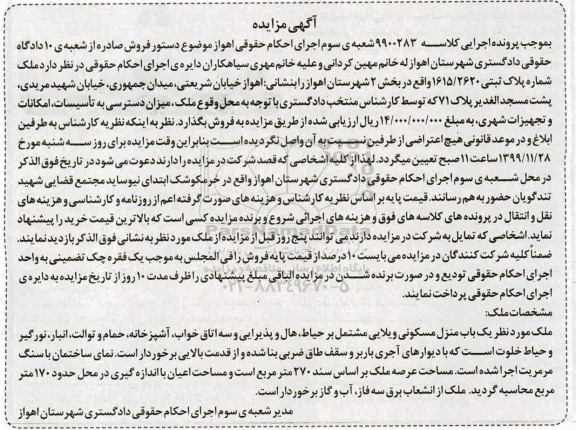 آگهی مزایده
بموجب پرونده اجرایی کلاسه ۹۹۰۰۲۸۳ شعبه ی سوم اجرای احکام حقوقی اهواز موضوع دستور فروش صادره از شعبه ی ۱۰ دادگاه
حقوقی دادگستری شهرستان اهواز له خانم مهین کردانی و علیه خانم مهری سیاهکاران دایره ی اجرای احکام حقوقی در نظر دارد ملک
شماره پلاک ثبتی ۱۶۱۵/۲۶۲۰ واقع در بخش ۲ شهرستان اهواز را بنشانی: اهواز خیابان شریعتی، میدان جمهوری، خیابان شهید مریدی،
پشت مسجد الغدیر پلاک ۷۱ که توسط کارشناس منتخب دادگستری با توجه به محل وقوع ملک، میزان دسترسی به تأسیسات، امکانات
و تجهیزات شهری، به مبلغ ۱۴/۰۰۰/۰۰۰/۰۰۰ ریال ارزیابی شده از طریق مزایده به فروش بگذارد. نظر به اینکه نظریه کارشناس به طرفین
ابلاغ و در موعد قانونی هیچ اعتراضی از طرفین نسبت به آن واصل نگردیده است بنابراین وقت مزایده برای روز سه شنبه مورخ
۱۳۹۹/۱۱/۲۸ ساعت ۱۱ صبح تعیین میگردد. لهذا از کلیه اشخاصی که قصد شرکت در مزایده را دارند دعوت می شود در تاریخ فوق الذکر
در محل شعبه ی سوم اجرای احکام حقوقی دادگستری شهرستان اهواز واقع در خرمکوشک ابتدای نیوساید مجتمع قضایی شهید
تندگویان حضور به هم رسانند. قیمت پایه بر اساس نظریه کارشناس و هزینه های صورت گرفته اعم از روزنامه و کارشناسی و هزینه های
نقل و انتقال در پرونده های کلاسه های فوق و هزینه های اجرائی شروع و برنده مزایده کسی است که بالاترین قیمت خرید را پیشنهاد
نماید. اشخاصی که تمایل به شرکت در مزایده دارند می توانند پنج روز قبل از مزایده از ملک مورد نظر به نشانی فوق الذکر بازدید نمایند.
ضمناً کلیه شرکت کنندگان در مزایده می بایست ۱۰ درصد از قیمت پایه فروش را فی المجلس به موجب یک فقره چک تضمینی به واحد
اجرای احکام حقوقی تودیع و در صورت برنده شدن در مزایده الباقی مبلغ پیشنهادی را ظرف مدت ۱۰ روز از تاریخ مزایده به دایره ی
اجرای احکام حقوقی پرداخت نمایند.
مشخصات ملک:
ملک مورد نظر یک باب منزل مسکونی ویلایی مشتمل بر حیاط، هال و پذیرایی و سه اتاق خواب، آشپزخانه، حمام و توالت، انبار، نورگیر
و حیاط خلوت است که با دیوارهای آجری باربر و سقف طاق ضربی بنا شده و از قدمت بالایی برخوردار است. نمای ساختمان با سنگ
مرمریت اجرا شده است. مساحت عرصه ملک بر اساس سند ۲۷۰ متر مربع است و مساحت اعیان با اندازه گیری در محل حدود ۱۷۰ متر
مربع محاسبه گردید. ملک از انشعاب برق سه فاز، آب و گاز برخوردار است.
مدیر شعبه ی سوم اجرای احکام حقوقی دادگستری شهرستان اهواز
ParsNamadData
۰۲۱-۸۸۳۴۹۶۷۰-۵